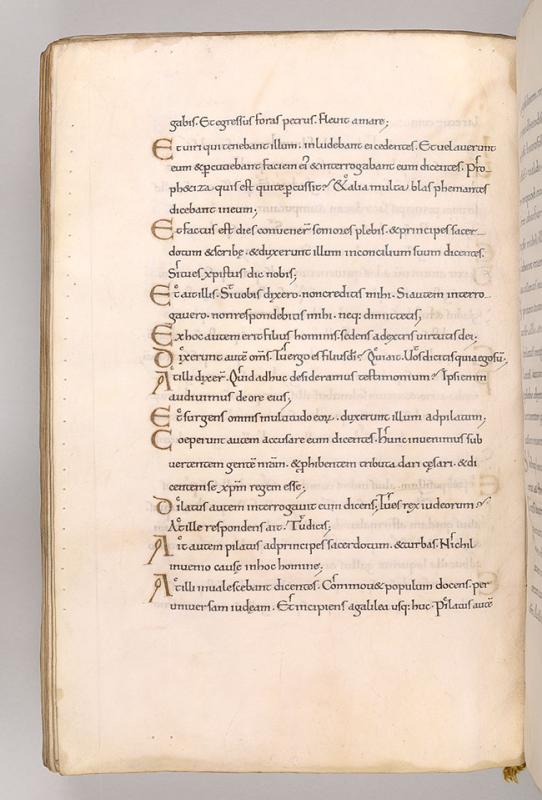 gabis. Et egressus foras petrus. Flevit amare;
Et viri qui tenebant illum. inludebant ei cedentes. Et velaverunt
eum & pcutiebant faciem ei' & interrogabant eum dicentes. Pro-
ph&iza quis est qui te pcussit? & alia multa blasphemantes
dicebant in eum;
Et factus est dies convener' seniores plebis. & principes sacer-
dotum & scribę. & duxerunt illum in concilium suum dicentes.
Si tu es xpistus dic nobis;
Et ait illis. Si vobis dixero. non creditis mihi. Si autem interro-
gavero. non respondebitis mihi. neq: dimittetis;
Ex hoc autem erit filius hominis. sedens a dextris virtutis dei;
Dixerunt autē om̄s. Tu ergo es filius dī? Qui ait. Vos dicitis quia ego sū;
At illi dixer'. Quid adhuc desideramus testimonium? Ipsi enim
audivimus de ore eius;
Et surgens omnis multitudo eoꝝ. duxerunt illum ad pilatum;
Coeperunt autem accusare eum dicentes. Hunc invenimus sub
vertentem gentē n̄rām. & phibentem tributa dari cęsari. & di
centem se xpm̄ regem esse;
Pilatus autem interrogavit eum dicens; Tu es rex iudeorum?
At ille respondens ait. Tu dicis;
Ait autem pilatus ad principes sacerdotum. & turbas. Nichil
invenio causę in hoc homine;
At illi invalescebant dicentes. Commov& populum docens. per
universam iudeam. Et incipiens a galilea usq: huc. Pilatus autē